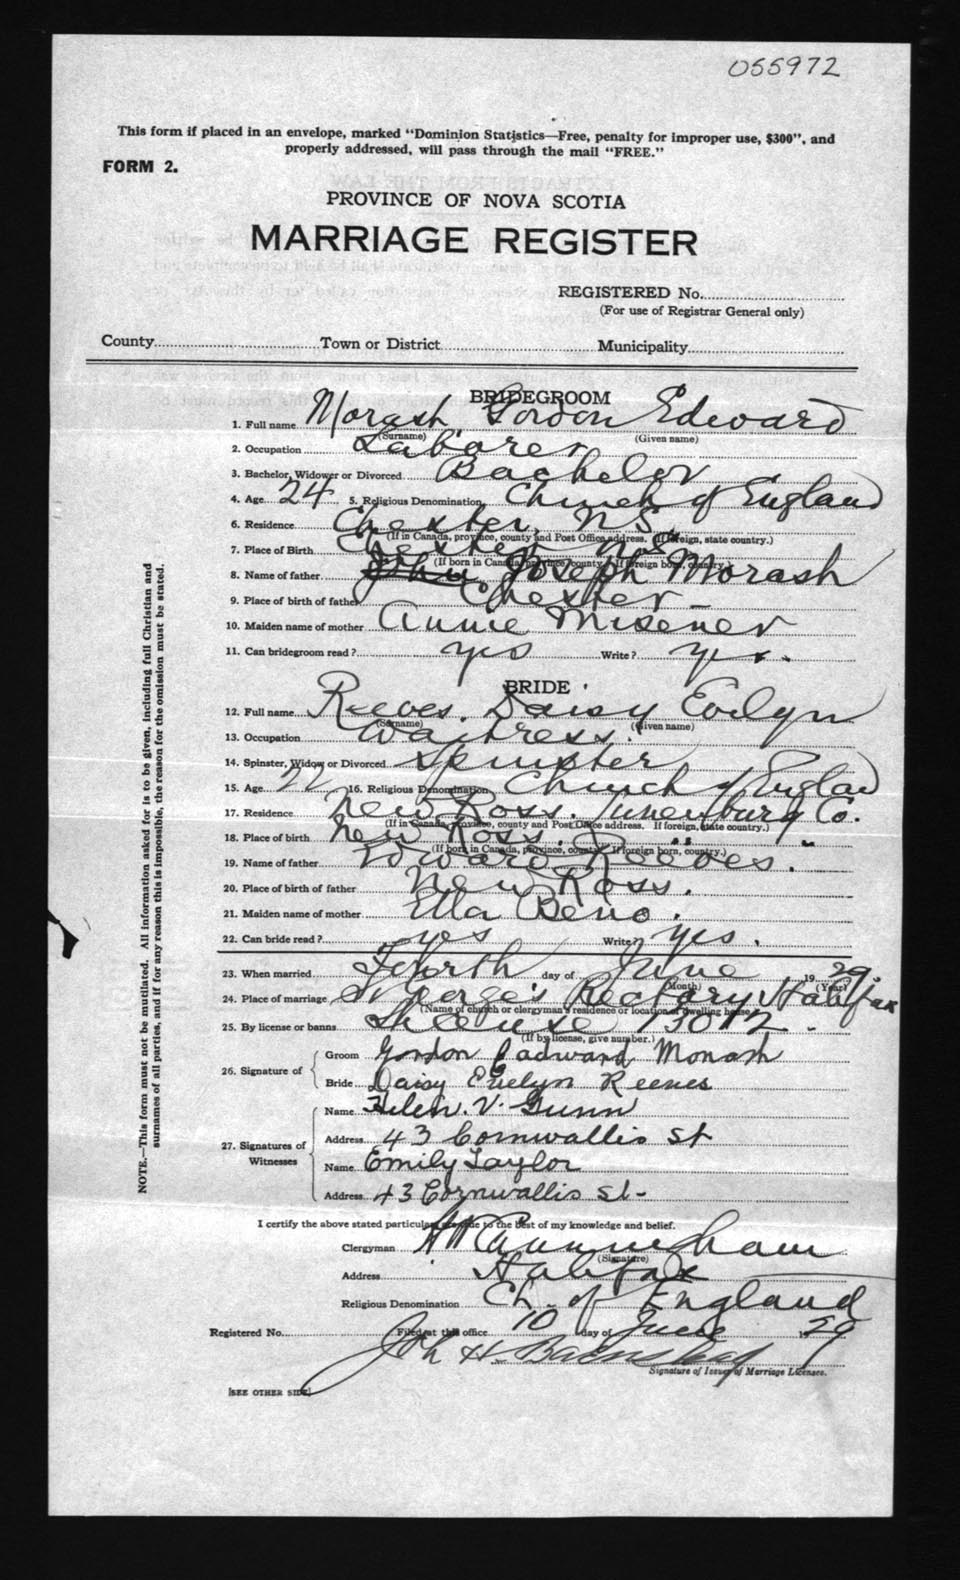 055972
This form if placed in an envelope, marked "Dominion Statistics—Free, penalty for improper use, $300", and
properly addressed, will pass through the mail "FREE."
FORM 2.
PROVINCE OF NOVA SCOTIA
MARRIAGE REGISTER
REGISTERED No.
(For use of Registrar General only)
County Town or District Municipality
BRIDEGROOM
1. Full name Morash, Gordon Edward
(Surname) (Given name)
2. Occupation Laborer
3. Bachelor, Widower or Divorced Bachelor
4. Age 24 5. Religious Denomination Church of England
6. Residence Chester, N.S.
(If in Canada, province, county and Post Office address. If foreign, state country.)
7. Place of Birth Chester N.S.
(If born in Canada, province, county. If foreign born, country.)
8. Name of father John Joseph Morash
9. Place of birth of father Chester
10. Maiden name of mother Annie Misener
11. Can bridegroom read? yes Write? yes.
BRIDE
12. Full name Reeves. Daisy Evelyn
(Surname) (Given name)
13. Occupation Waitress.
14. Spinster, Widow or Divorced Spinster
15. Age 22 16. Religious Denomination Church of Englad
17. Residence New Ross. Lunenburg Co.
(If in Canada, province, county and Post Office address. If foreign, state country.)
18. Place of birth New Ross. "
(If born in Canada, province, county. If foreign born, country.)
19. Name of father Edward Reeves.
20. Place of birth of father New Ross.
21. Maiden name of mother Etta Beno.
22. Can bride read? yes Write? yes.
23. When married Fourth day of June 19 29.
(Month) (Year)
24. Place of marriage St George's Rectory Halifax
(Name of church or clergyman's residence or location of dwelling house.)
25. By license or banns License 13012.
(If by license, give number.)
26. Signature of Groom Gordon Eadward Morash
Bride Daisy Evelyn Reeves
27. Signatures of Witnesses Name Helen. V. Gunn
Address 43 Cornwallis St
Name Emily Taylor
Address 43 Cornwallis St-
I certify the above stated particulars are true to the best of my knowledge and belief.
Clergyman Cunningham
(Signature)
Address Halifax
Religious Denomination Ch. of England
Registered No. Filed at this office 10 day of June 1929
John H. Barnstead
Signature of Issuer of Marriage Licenses.
[SEE OTHER SIDE]
NOTE.—This form must not be mutilated. All information asked for is to be given, including full Christian and
surnames of all parties, and if for any reason this is impossible, the reason for the omission must be stated.